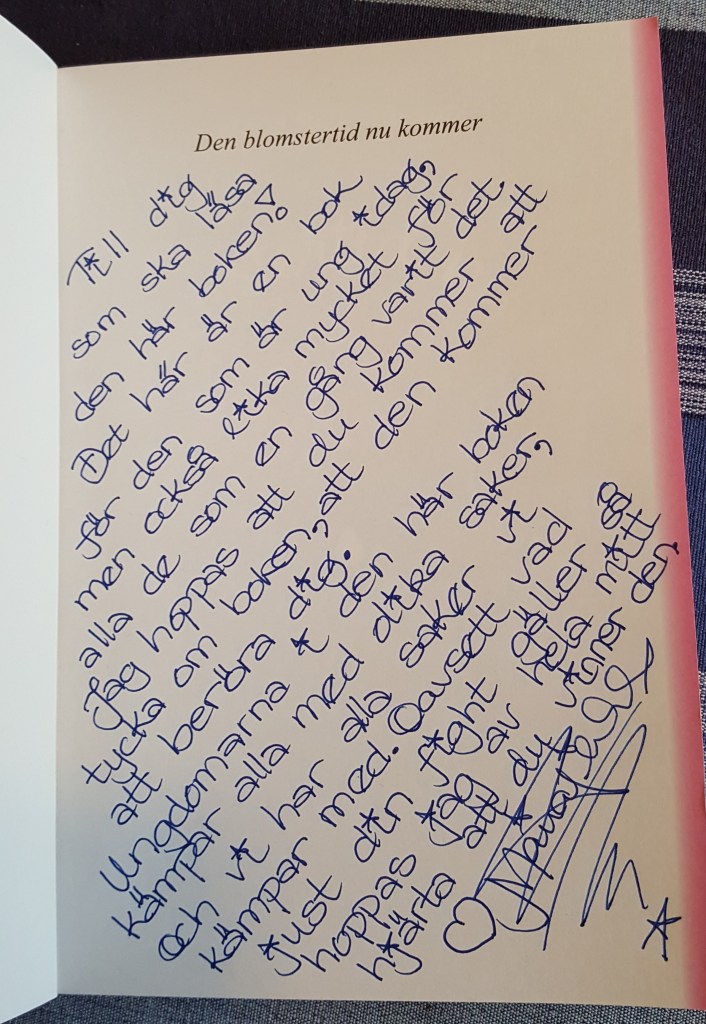 Den blomstertid nu kommer
Till dig
som ska läsa
den här boken!
Det här är en bok
för den som är ung idag,
men också lika mycket för
alla de som en gång varit det.
Jag hoppas att du kommer att
tycka om boken, att den kommer
att beröra dig.
Ungdomarna i den här boken
kämpar alla med olika saker,
och vi har alla saker vi
kämpar med. Oavsett vad
just din fight gäller så
hoppas jag av hela mitt
hjärta att du vinner den.